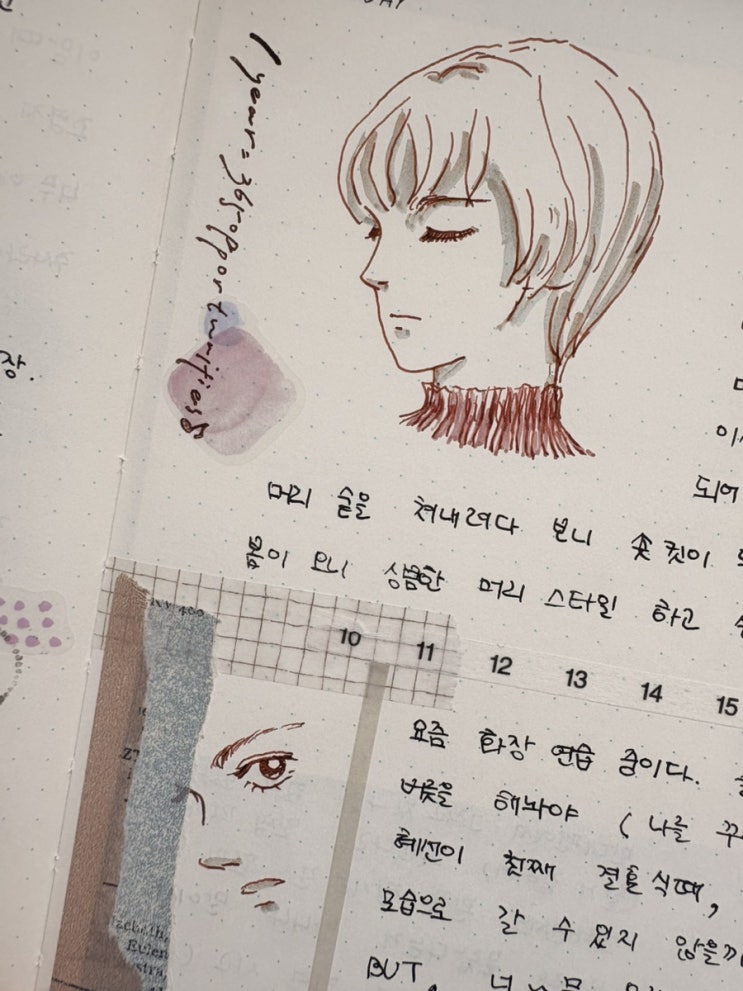 1 year = 365 opportunities
장.
이
되어
머리 숱을 쳐내려다 보니 숏컷이
봄이 오니 상큼한 머리 스타일 하고
10 11 12 13 14 15
요즘 화장 연습 중이다.
버릇을 해놔야 (나를 꾸
혜선이 첫째 결혼식때,
모습으로 갈 수 있지 않을까
BUT, 너